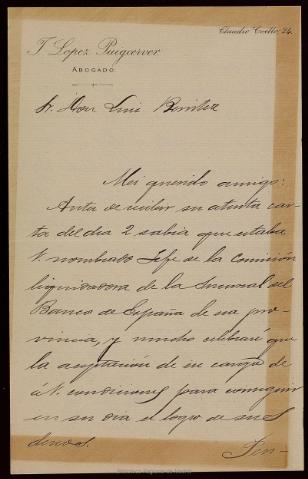 Claudio Coello, 24.
J Lopez Puigcerver
ABOGADO
Sr. Don Luis
Mi querido amigo:
Antes de recibir su atenta car-
ta del dia 2 sabia que estaba
V. nombrado Jefe de la Comisión
liquidadora de la Sucursal del
Banco de España de esa pro-
vincia, y mucho celebraré que
la aceptación de su cargo de
á V. condiciones para conseguir
en su dia el logro de sus
deseos.
Sin-